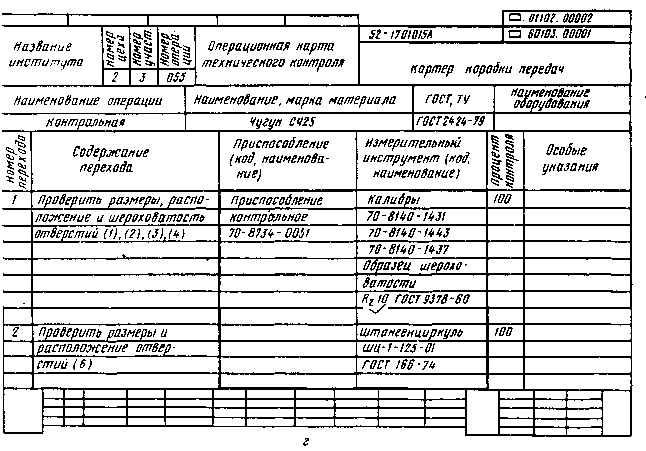 01102. 00002
52-1701015А
60103. 00001
Название института
номер цеха
номер участ.
номер операции
Операционная карта технического контроля
2 3 055
картер коробки передач
Наименование операции
Наименование, марка материала
ГОСТ, ТУ
Наименование оборудования
контрольная
Чугун СЧ25
ГОСТ 2424-79
номер перехода
Содержание перехода
Приспособление (код, наименование)
Измерительный инструмент (код, наименование)
процент контроля
Особые указания
1 Проверить размеры, распо-
ложение и шероховатость
отверстий (1), (2), (3), (4)
Приспособление
контрольное
70-8734-0051
Калибры
70-8140-1431
70-8140-1443
70-8140-1437
Образец шерохо-
ватости
Rz 10 ГОСТ 9378-60
100
2 Проверить размеры и
расположение отвер-
стий (6)
штангенциркуль
шц-1-125-01
ГОСТ 166-74
100
г